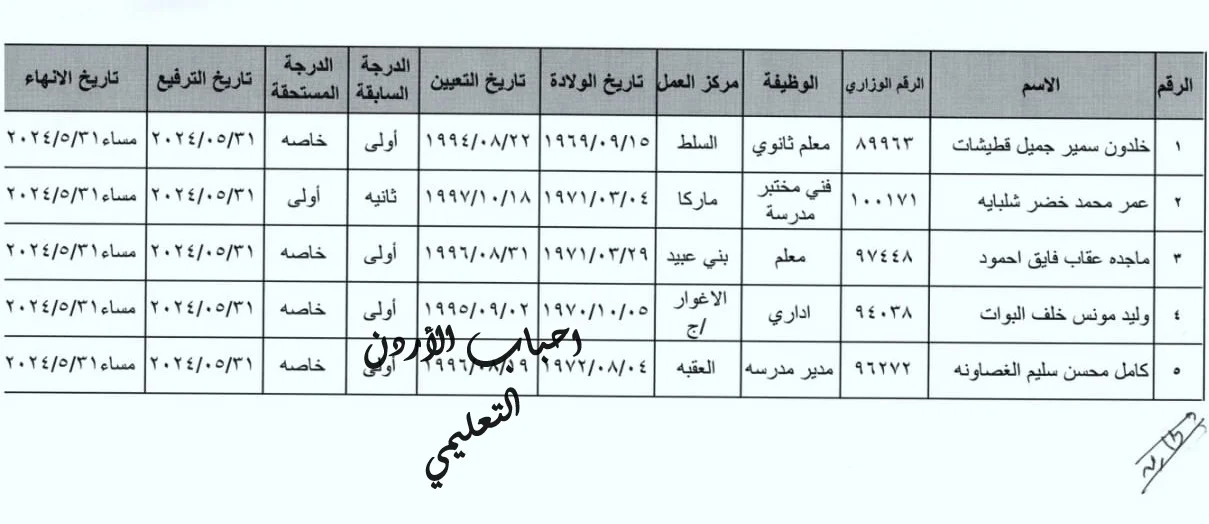 الرقم الاسم الرقم الوزاري الوظيفة مركز العمل تاريخ الولادة تاريخ التعيين الدرجة السابقة الدرجة المستحقة تاريخ الترفيع تاريخ الانهاء
١ خلدون سمير جميل قطيشات ٨٩٩٦٣ معلم ثانوي السلط ١٩٦٩/٠٩/١٥ ١٩٩٤/٠٨/٢٢ أولى خاصه ٢٠٢٤/٠٥/٣١ مساء ٢٠٢٤/٥/٣١
٢ عمر محمد خضر شلبايه ١٠٠١٧١ فني مختبر مدرسة ماركا ١٩٧١/٠٣/٠٤ ١٩٩٧/١٠/١٨ ثانيه أولى ٢٠٢٤/٠٥/٣١ مساء ٢٠٢٤/٥/٣١
٣ ماجده عقاب فايق احمود ٩٧٤٤٨ معلم بني عبيد ١٩٧١/٠٣/٢٩ ١٩٩٦/٠٨/٣١ أولى خاصه ٢٠٢٤/٠٥/٣١ مساء ٢٠٢٤/٥/٣١
٤ وليد مونس خلف البوات ٩٤٠٣٨ اداري الاغوار /ج ١٩٧٠/١٠/٠٥ ١٩٩٥/٠٩/٠٢ أولى خاصه ٢٠٢٤/٠٥/٣١ مساء ٢٠٢٤/٥/٣١
٥ كامل محسن سليم الغصاونه ٩٦٢٧٢ مدير مدرسه العقبه ١٩٧٢/٠٨/٠٤ ١٩٩٦/٠٨/١٩ أولى خاصه ٢٠٢٤/٠٥/٣١ مساء ٢٠٢٤/٥/٣١
احباب الأردن
التعليمي